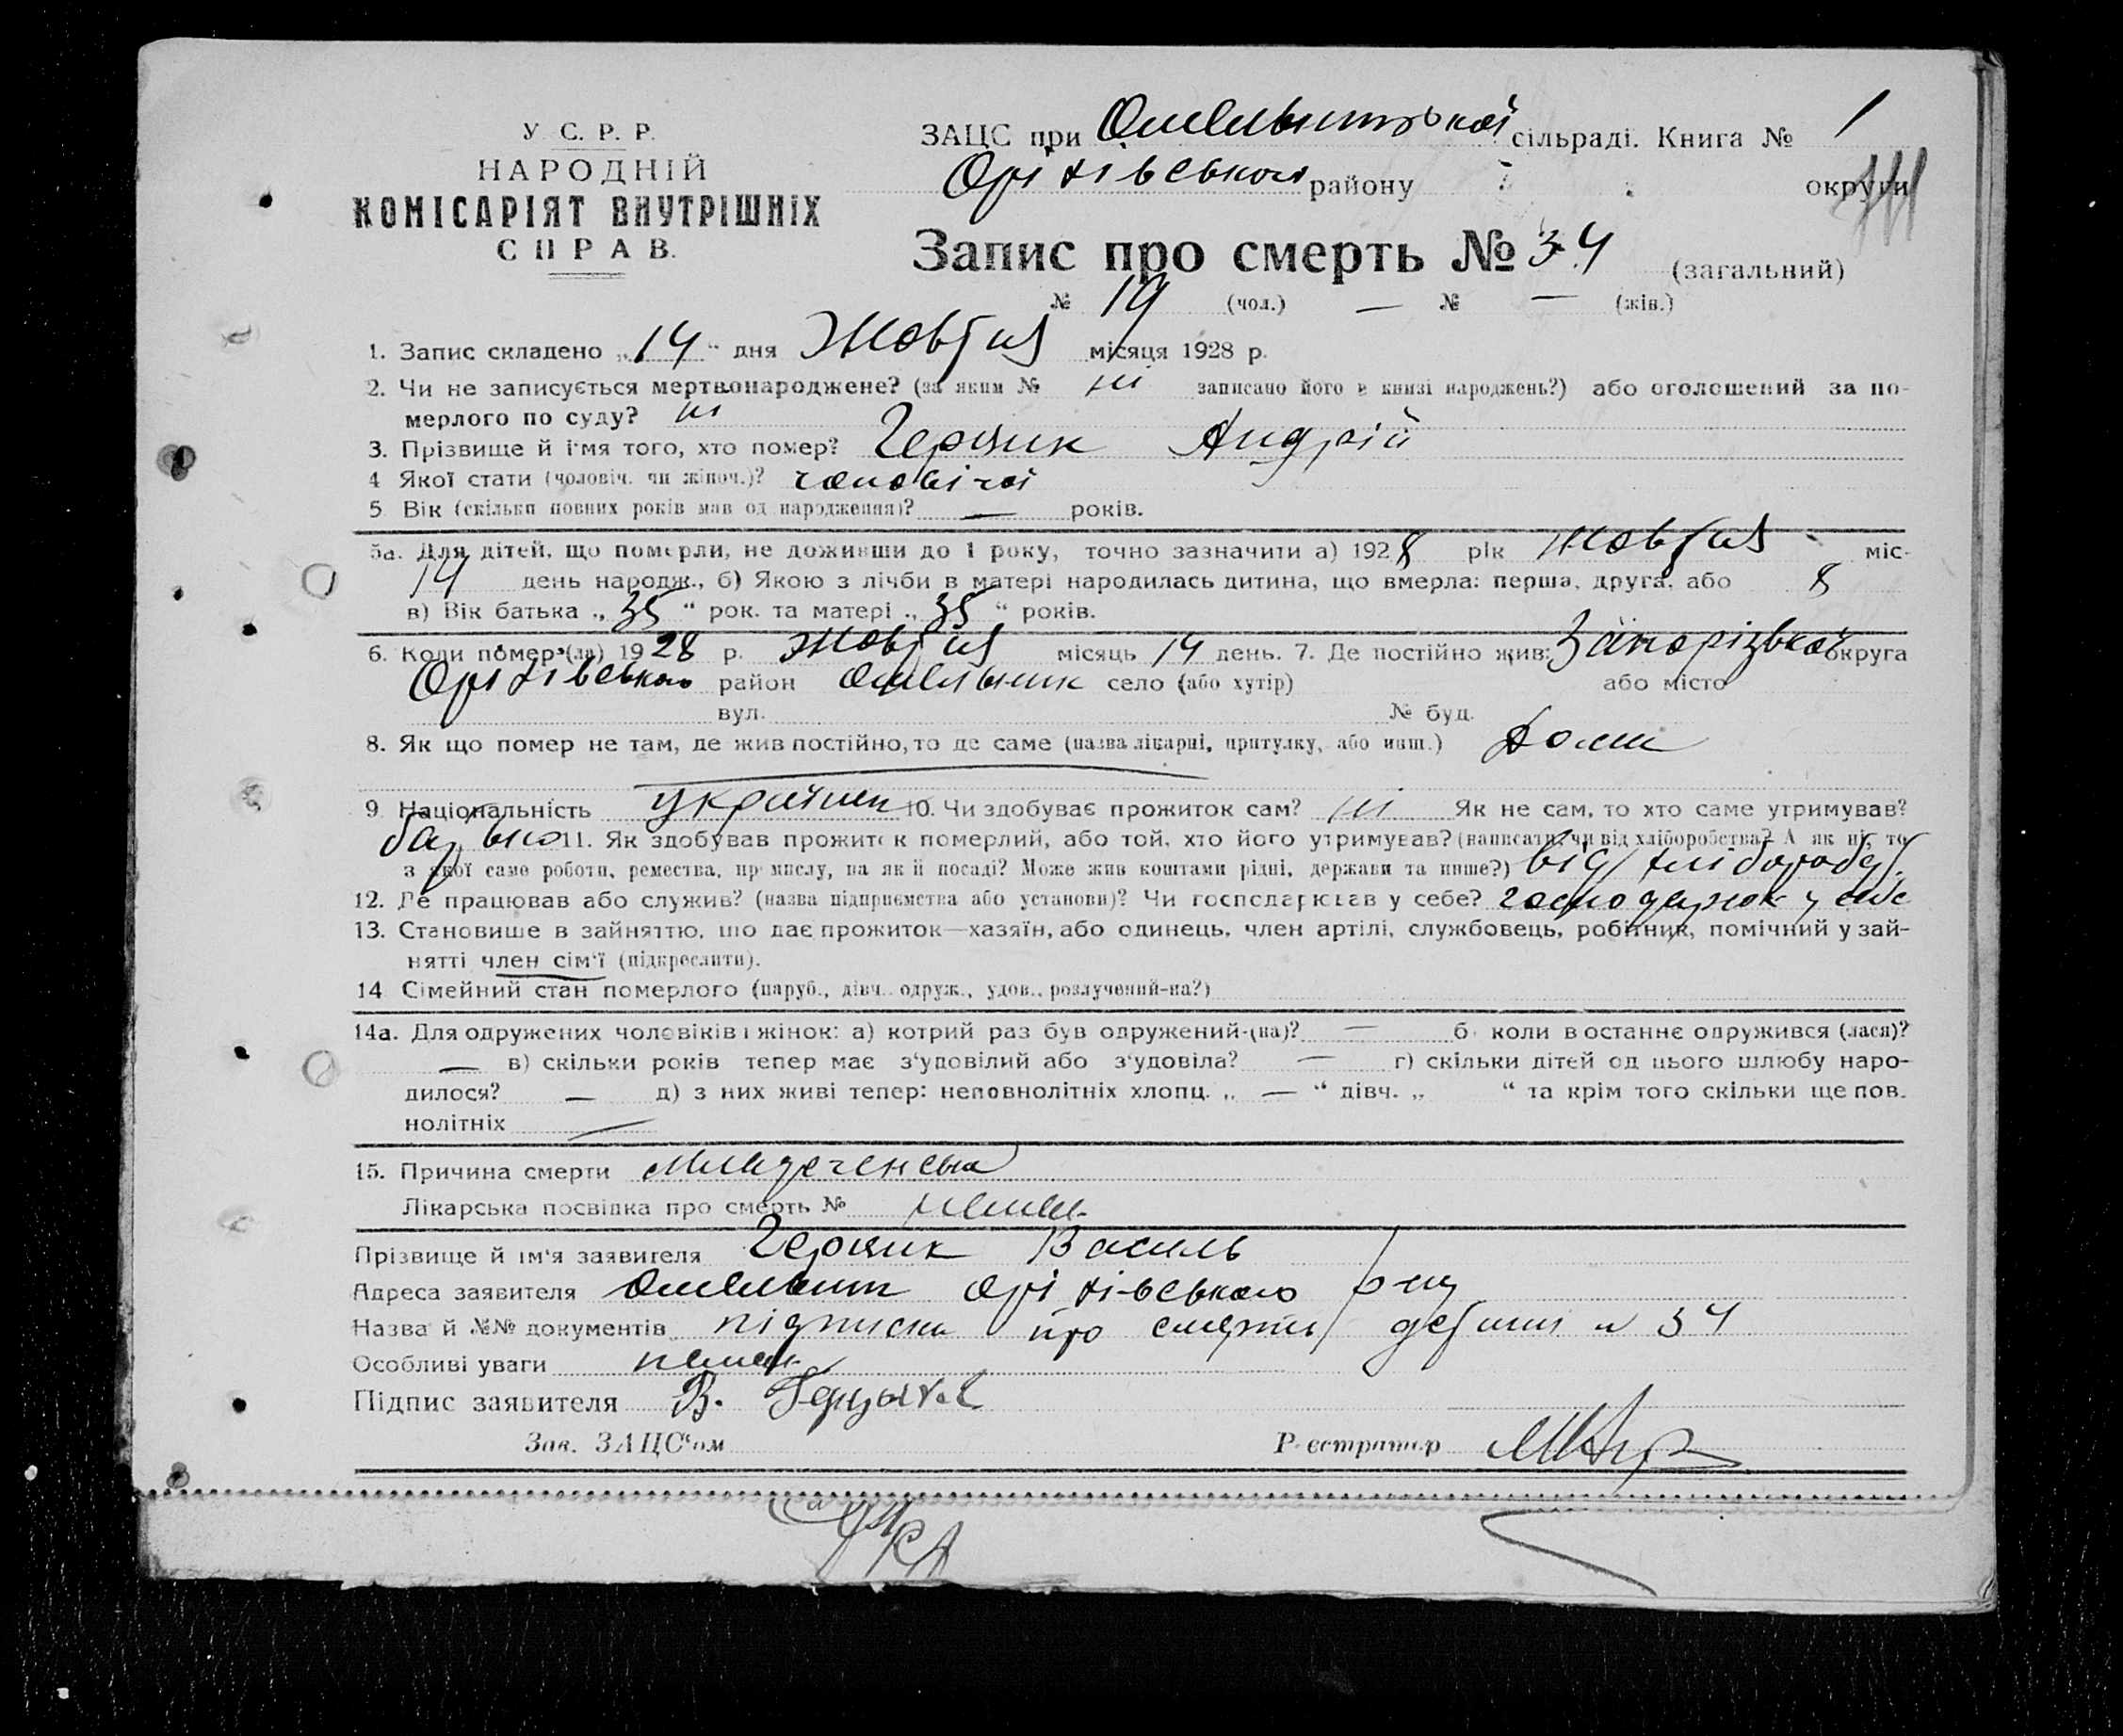 У. С. Р. Р.
НАРОДНІЙ
КОМІСАРІЯТ ВНУТРІШНІХ
СПРАВ.
ЗАЦС при Омельницької сільраді. Книга № 1
Оріхівського району округи
Запис про смерть № 34 (загальний)
№ 19 (чол.) — № — (жін.)
1. Запис складено „14“ дня Жовтня місяця 1928 р.
2. Чи не записується мертвонароджене? (за яким № ні записано його в книзі народжень?) або оголошений за по-
мерлого по суду? ні
3. Прізвище й ім'я того, хто помер? Герцик Андрій
4 Якої стати (чоловіч. чи жіноч.)? чоловічої
5 Вік (скільки повних років мав од народження)? — років.
5а. Для дітей, що померли, не доживши до 1 року, точно зазначити а) 1928 рік Жовтня міс-
14 день народж., б) Якою з лічби в матері народилась дитина, що вмерла: перша, друга, або 8
в) Вік батька „35“ рок. та матері „35“ років.
6. Коли помер(ла) 1928 р. Жовтня місяць 14 день. 7. Де постійно жив: Запорізької округа
Оріхівського район Омельник село (або хутір) або місто
вул. № буд.
8. Як що помер не там, де жив постійно, то де саме (назва лікарні, притулку, або инш.) Дома
9 Національність українец 10. Чи здобуває прожиток сам? ні Як не сам, то хто саме утримував?
батько 11. Як здобував прожиток померлий, або той, хто його утримував? (написати: чи від хліборобства? А як ні, то
з якої саме роботи, ремества, промислу, на якій посаді? Може жив коштами рідні, держави та инше?) від хліборобст.
12. Де працював або служив? (назва підприємства або установи)? Чи господарював у себе? господарюв у себе
13. Становише в зайняттю, що дає прожиток—хазяїн, або одинець, член артілі, службовець, робітник, помічний у зай-
нятті член сім'ї (підкреслити).
14 Сімейний стан померлого (паруб., дівч. одруж., удов., розлучений-на?)
14а. Для одружених чоловіків і жінок: а) котрий раз був одружений-(на)? — б) коли востаннє одружився (лася)?
— в) скільки років тепер має з'удовілий або з'удовіла? — г) скільки дітей од цього шлюбу наро-
дилося? — д) з них живі тепер: неповнолітніх хлопц. „ — “ дівч. „ “ та крім того скільки ще пов.
нолітніх —
15. Причина смерти
Лікарська посвідка про смерть № немає
Прізвище й ім'я заявителя Герцик Василь
Адреса заявителя Омельник Оріхівського р-ну
Назва й №№ документів підписка про смерть № 34
Особливі уваги немає
Підпис заявителя В. Герцык
Зав. ЗАЦС'ом Реєстратор